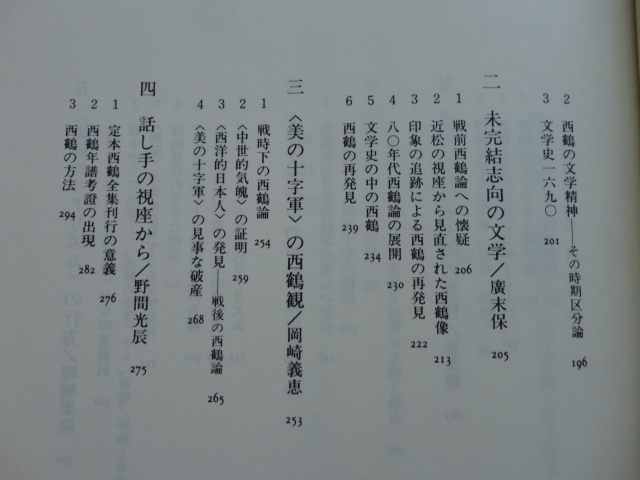 2 西鶴の文学精神――その時期区分論 196
3 文学史一六九〇 201
二 未完結志向の文学/廣末保 205
1 戦前西鶴論への懐疑 206
2 近松の視座から見直された西鶴像 213
3 印象の追跡による西鶴の再発見 222
4 八〇年代西鶴論の展開 230
5 文学史の中の西鶴 234
6 西鶴の再発見 239
三 〈美の十字軍〉の西鶴観/岡崎義恵 253
1 戦時下の西鶴論 254
2 〈中世的気魄〉の証明 259
3 〈西洋的日本人〉の発見――戦後の西鶴論 265
4 〈美の十字軍〉の見事な破産 268
四 話し手の視座から/野間光辰 275
1 定本西鶴全集刊行の意義 276
2 西鶴年譜考證の出現 282
3 西鶴の方法 294